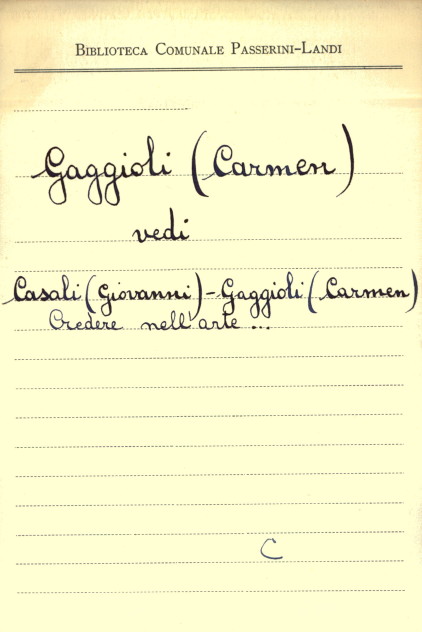 Biblioteca Comunale Passerini-Landi
Gaggioli (Carmen)
vedi
Casali (Giovanni) - Gaggioli (Carmen)
Credere nell'arte ...
C